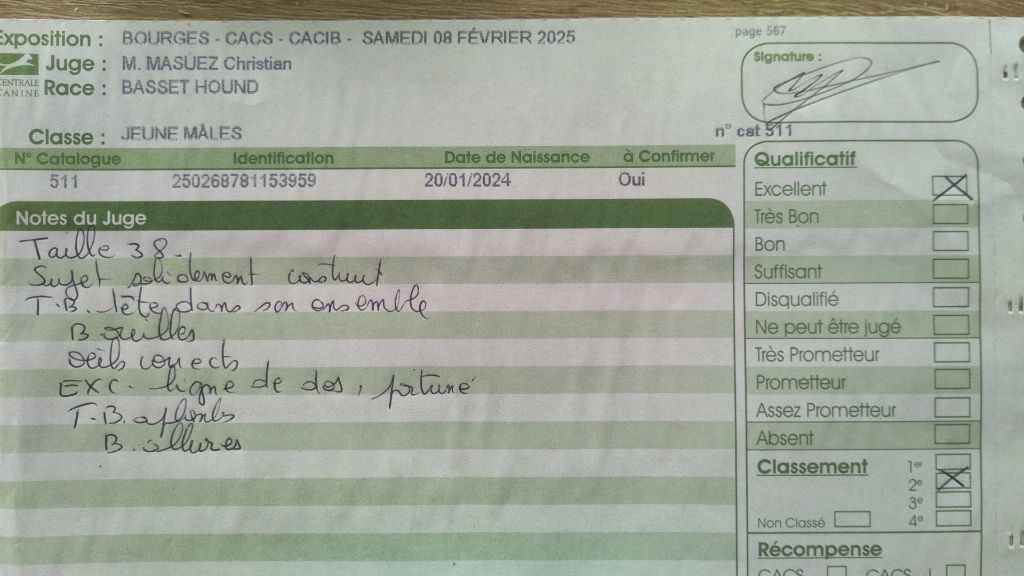 Exposition : BOURGES - CACS - CACIB - SAMEDI 08 FÉVRIER 2025
page 567
Juge : M. MASUEZ Christian
CENTRALE CANINE
Race : BASSET HOUND
Signature :
Classe : JEUNE MÂLES
n° cat 511
N° Catalogue Identification Date de Naissance à Confirmer
511 250268781153959 20/01/2024 Oui
Notes du Juge
Taille 38.
Sujet solidement construit
T.B. tête dans son ensemble
B. oreilles
oeils corrects
EXC. ligne de dos,
T.B. aplombs
B. allures
Qualificatif
Excellent
Très Bon
Bon
Suffisant
Disqualifié
Ne peut être jugé
Très Prometteur
Prometteur
Assez Prometteur
Absent
Classement 1er
2e
3e
Non Classé 4e
Récompense
CACS CACS - J